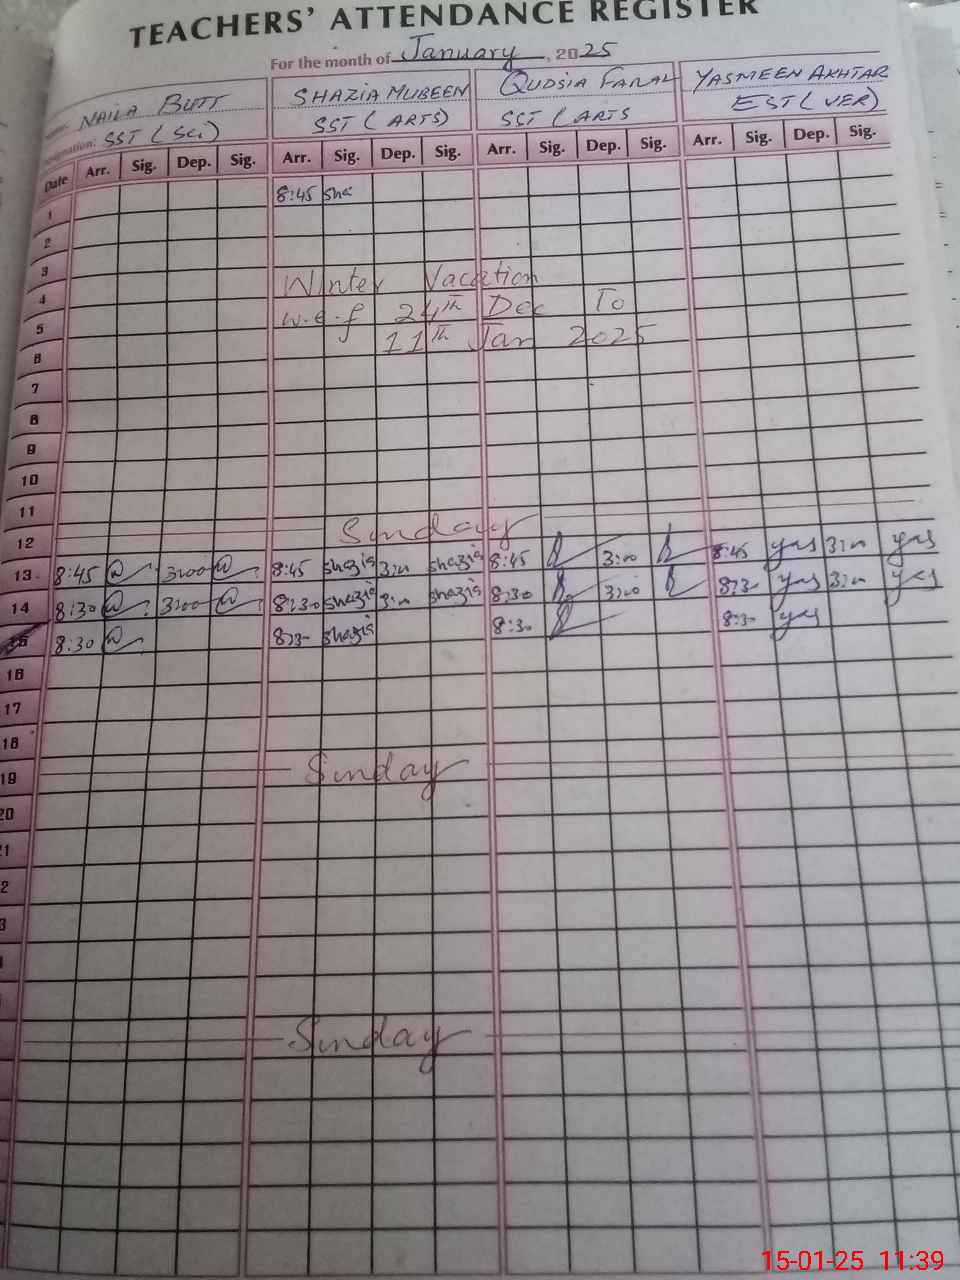 TEACHERS' ATTENDANCE REGISTER
For the month of January, 2025
NAILA BUTT SHAZIA MUBEEN QUDSIA YASMEEN AKHTAR
SST (Sci) SST (ARTS) SST (ARTS EST (VER)
Date Arr. Sig. Dep. Sig. Arr. Sig. Dep. Sig. Arr. Sig. Dep. Sig. Arr. Sig. Dep. Sig.
1 8:45 sha
2
3
Winter Vacation
4
w.e.f 24th Dec To
5
11th Jan 2025
6
7
8
9
10
11
12 Sunday
13 8:45 3:00 8:45 shazia 3:00 shazia 8:45 3:00 8:45 yas 3:00 yas
14 8:30 3:00 8:30 shazia 3:00 shazia 8:30 3:00 8:30 yas 3:00 yas
15 8:30 8:30 shazia 8:30 8:30 yas
16
17
18
19 Sunday
20
1
2
3
Sunday
15-01-25 11:39